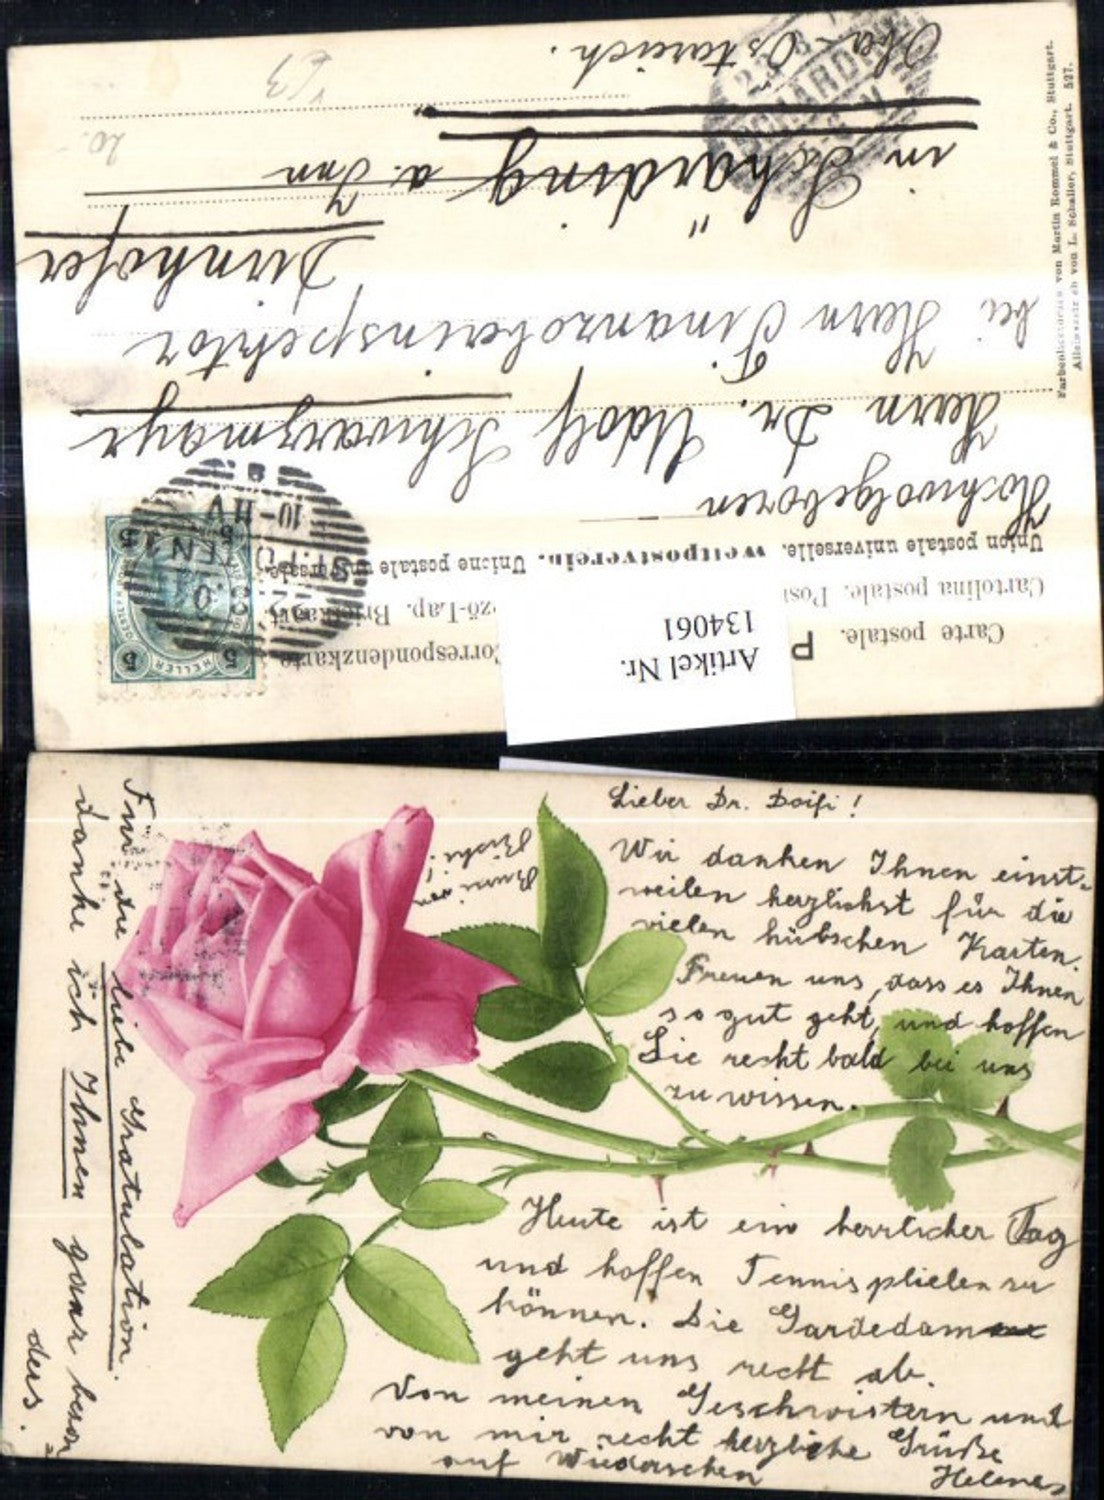 Carte postale.
Correspondenzkarte.
Cartolina postale.
ző-Lap. Briefkaart.
Union postale universelle. Weltpostverein. Unione postale universale.
Artikel Nr.
134061
5 HELLER 5
Hochwolgeboren
Herrn Dr. Adolf Schwarzmayr
bei Herrn Finanzoberinspektor
Dirnhofer
in Schärding a. Inn
Ober-Österreich.
Farbenlichtdruck von Martin Rommel & Co., Stuttgart.
Alleinvertrieb von L. Schaller, Stuttgart. 527.
Lieber Dr. Dolfi!
Wir danken Ihnen einst-
weilen herzlichst für die
vielen hübschen Karten.
Freuen uns, dass es Ihnen
so gut geht, und hoffen
Sie recht bald bei uns
zu wissen.
Heute ist ein herrlicher Tag
und hoffen Tennisplielen zu
können. Die Gardedam
geht uns recht ab.
Von meinen Geschwistern und
von mir recht herzliche Grüße
auf Wiedersehen
Helene
Für die liebe Gratulation
danke ich Ihnen ganz beson
ders.